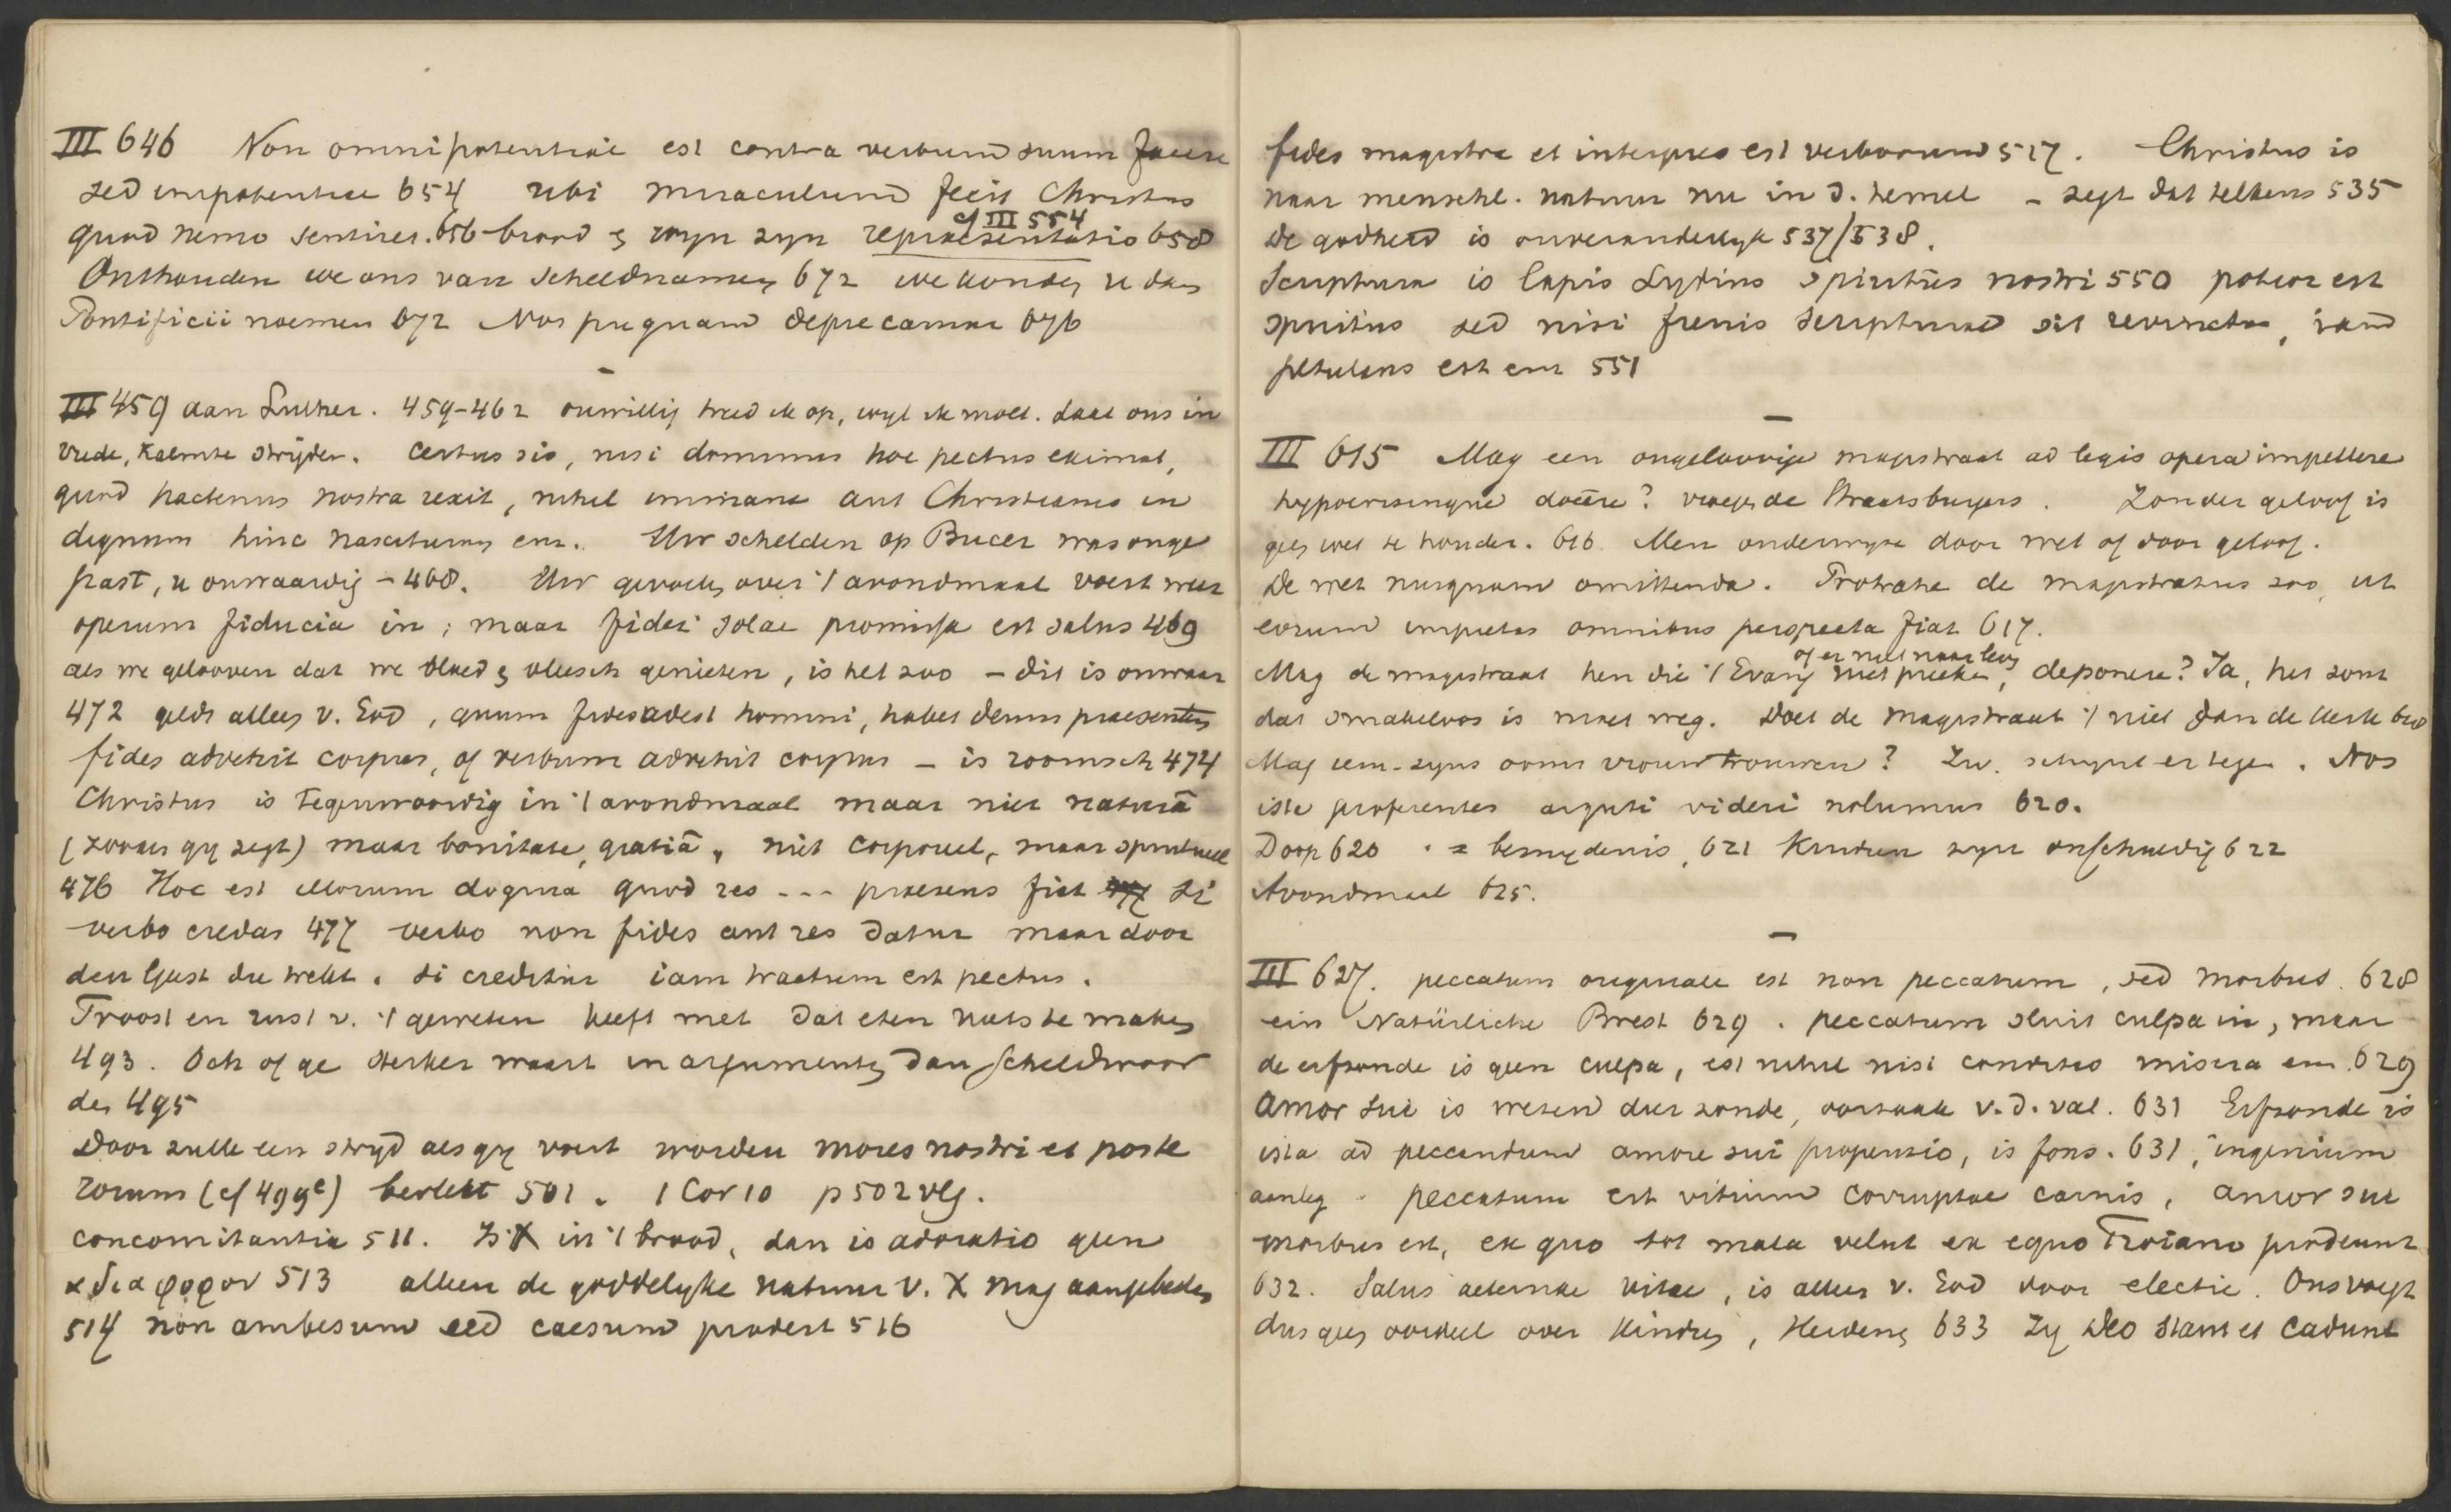 III 646 Non omnipotentiae est contra verbum suum facere
sed impotentiae 654 ubi miraculum fecit Christus
cf III 554
quod nemo sentiret. 656 brood & wyn zyn repraesentatio 658
Onthouden we ons van scheldnamen 672 we konden u dan
Pontificii noemen 672 Nos pugnam deprecamur 676
III 459 aan Luther. 459-462 onwillig treed ik op, wyl ik moet. Laat ons in
vrede, kalmte strijden. Certus sis, nisi dominus hoc pectus eximat,
quod hactenus nostra rexit, nihil immane aut Christianis in
dignum hinc nasciturum em. Uw schelden op Bucer was onge
past, u onwaardig - 468. Uw gevoelen over 't avondmaal voert weer
operum fiducia in; maar fidei solae promissa est salus 469
als we gelooven dat we bloed & vleesch genieten, is het zoo - dit is onwaar
472 geldt alleen v. God, quum fides adest homini, habet deum praesentem
fides advehit corpus, of verbum advehit corpus - is roomsch 474
Christus is tegenwoordig in 't avondmaal maar niet naturâ
(zooals gy zegt) maar bonitate, gratiâ, niet corporeel, maar spiritueel
476 Hoc est illorum dogma quod res --- praesens fiet si
verbo credas 477 verbo non fides aut res datur maar door
den Geest die trekt. Si creditur iam tractum est pectus.
Troost en rust v. 't geweten heeft met dat eten niets te maken
493. Och of ge sterker waart in argumenten dan scheldwoor
den 495
Door zulk een stryd als gy voert worden mores nostri et poste
rorum (cf 499e) bevlekt 501. 1 Cor 10 p 502 vlg.
concomitantia 511. Is X in 't brood, dan is adoratio geen
αδιαφορον 513 alleen de goddelyke natuur v. X mag aangebeden
514 non ambesum sed caesum prodest 516
fides magistra et interpres est verborum 517. Christus is
naar menschl. natuur nu in d. hemel - zegt dat telkens 535
de godheid is onveranderlyk 537/538.
Scriptura is lapis Lydius spiritûs nostri 550 potior est
spiritus sed nisi frenis scripturae sit revinctus, iam
petulans est em 551
III 615 Mag een ongeloovige magistraat ad legis opera impellere
hypocrisinque docere? vroegen de Straatsburgers. Zonder geloof is
geen wet te houden. 616. Men onderwyze door wet of door geloof.
De wet nusquam omittenda. Protrahe de magistratus zoo, ut
eorum impietas omnibus perspecta fiat 617.
of er niet naar leven
Mag de magistraat hen die 't Evang niet preeken, deponere? Ja, het zout
dat smakeloos is moet weg. Doet de magistraat 't niet dan de kerk 620
Mag iem. zyns ooms vrouw trouwen? Zw. schynt er tegen. Nos
iste proferentes arguti videri nolumus 620.
Doop 620 = besnydenis, 621 Kinderen zyn onschuldig 622
Avondmaal 625.
III 627. peccatum originale est non peccatum, sed morbus. 628
ein Natürliche Brest 629. peccatum sluit culpa in, maar
de erfzonde is geen culpa, est nihil nisi conditio misera em. 629
Amor sui is wezen der zonde, oorzaak v. d. val. 631 Erfzonde is
ista ad peccandum amore sui propensio, is fons. 631, ingenium
aanleg. peccatum est vitium corruptae carnis, amor sui
morbus est, ex quo tot mala velut ex equo Troiano prodeunt
632. Salus aeternae vitae, is alleen v. God door electie. Ons voegt
dus geen oordeel over kinderen, Heidenen 633 Zy deo stant et cadunt